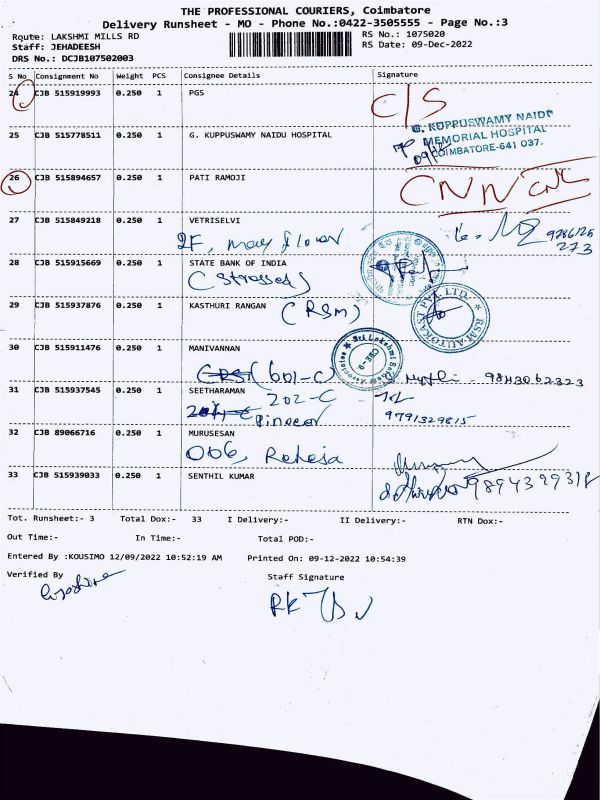 THE PROFESSIONAL COURIERS, Coimbatore
Delivery Runsheet - MO - Phone No.:0422-3505555 - Page No.:3
Route: LAKSHMI MILLS RD
RS No.: 1075020
Staff: JEHADEESH
RS Date: 09-Dec-2022
DRS No.: DCJB107502003
S No Consignment No Weight PCS Consignee Details Signature
24 CJB 515919993 0.250 1 PGS
C/S
25 CJB 515778511 0.250 1 G. KUPPUSWAMY NAIDU HOSPITAL
G. KUPPUSWAMY NAIDU
MEMORIAL HOSPITAL
COIMBATORE-641 037.
26 CJB 515894657 0.250 1 PATI RAMOJI
CNN
27 CJB 515849218 0.250 1 VETRISELVI
2F, may flower
28 CJB 515915669 0.250 1 STATE BANK OF INDIA
(Stressed)
29 CJB 515937876 0.250 1 KASTHURI RANGAN (RSM)
RSM AUTOKAST PVT. LTD.
30 CJB 515911476 0.250 1 MANIVANNAN
Sri Lakshmi
Associates
CBE-9
(601-C)
9843062323
31 CJB 515937545 0.250 1 SEETHARAMAN
202-C
9791329815
32 CJB 89066716 0.250 1 MURUSESAN
006, Raheja
33 CJB 515939033 0.250 1 SENTHIL KUMAR
Tot. Runsheet:- 3 Total Dox:- 33 I Delivery:- II Delivery:- RTN Dox:-
Out Time:- In Time:- Total POD:-
Entered By :KOUSIMO 12/09/2022 10:52:19 AM Printed On: 09-12-2022 10:54:39
Verified By
Staff Signature